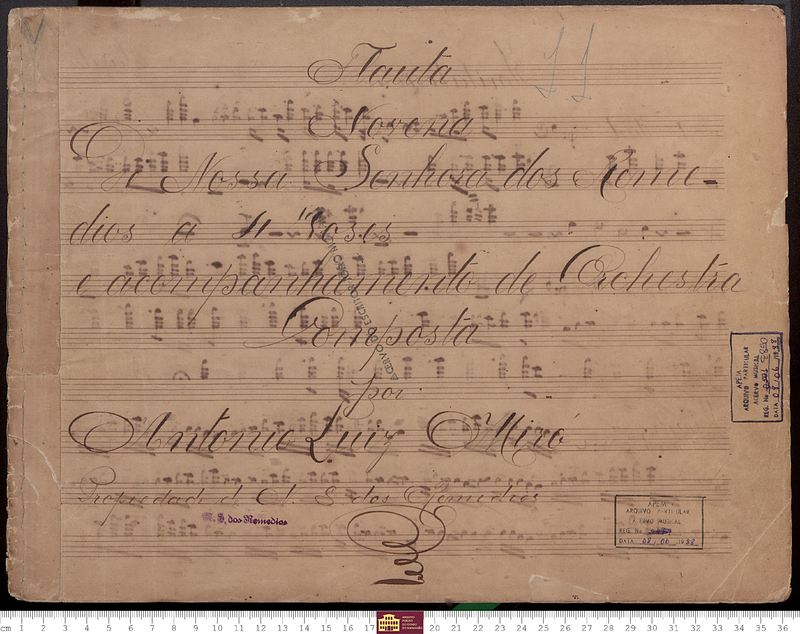 Flauta
Novena
De Nossa Senhora dos Reme-
dios a 4 Vozes
e acompanhamento de Orchestra
Composta
por
Antonio Luiz Miró
Propiedade d N. S. dos Remedios
N. S. dos Remedios
APEM
ARQUIVO PARTICULAR
ACERVO MUSICAL
REG. No
DATA 08/06/1988
APEM
ARQUIVO PARTICULAR
ACERVO MUSICAL
REG. No
DATA 08/06/1988
cm 1 2 3 4 5 6 7 8 9 10 11 12 13 14 15 16 17 20 21 22 23 24 25 26 27 28 29 30 31 32 33 34 35 36